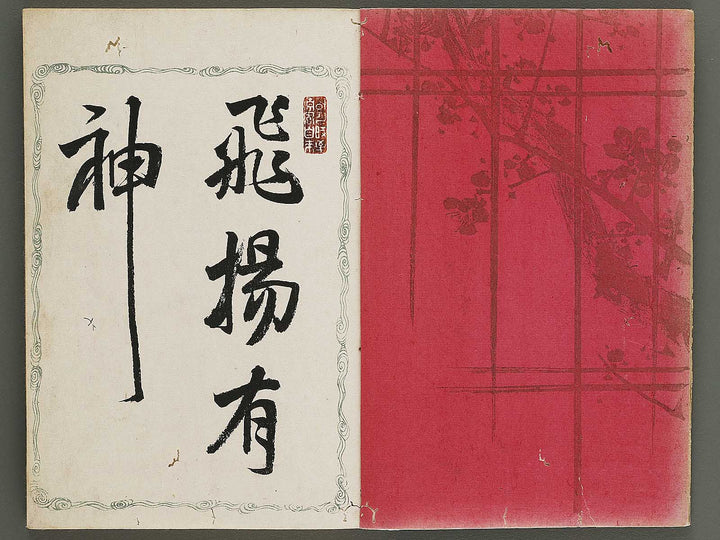 飛揚有
神